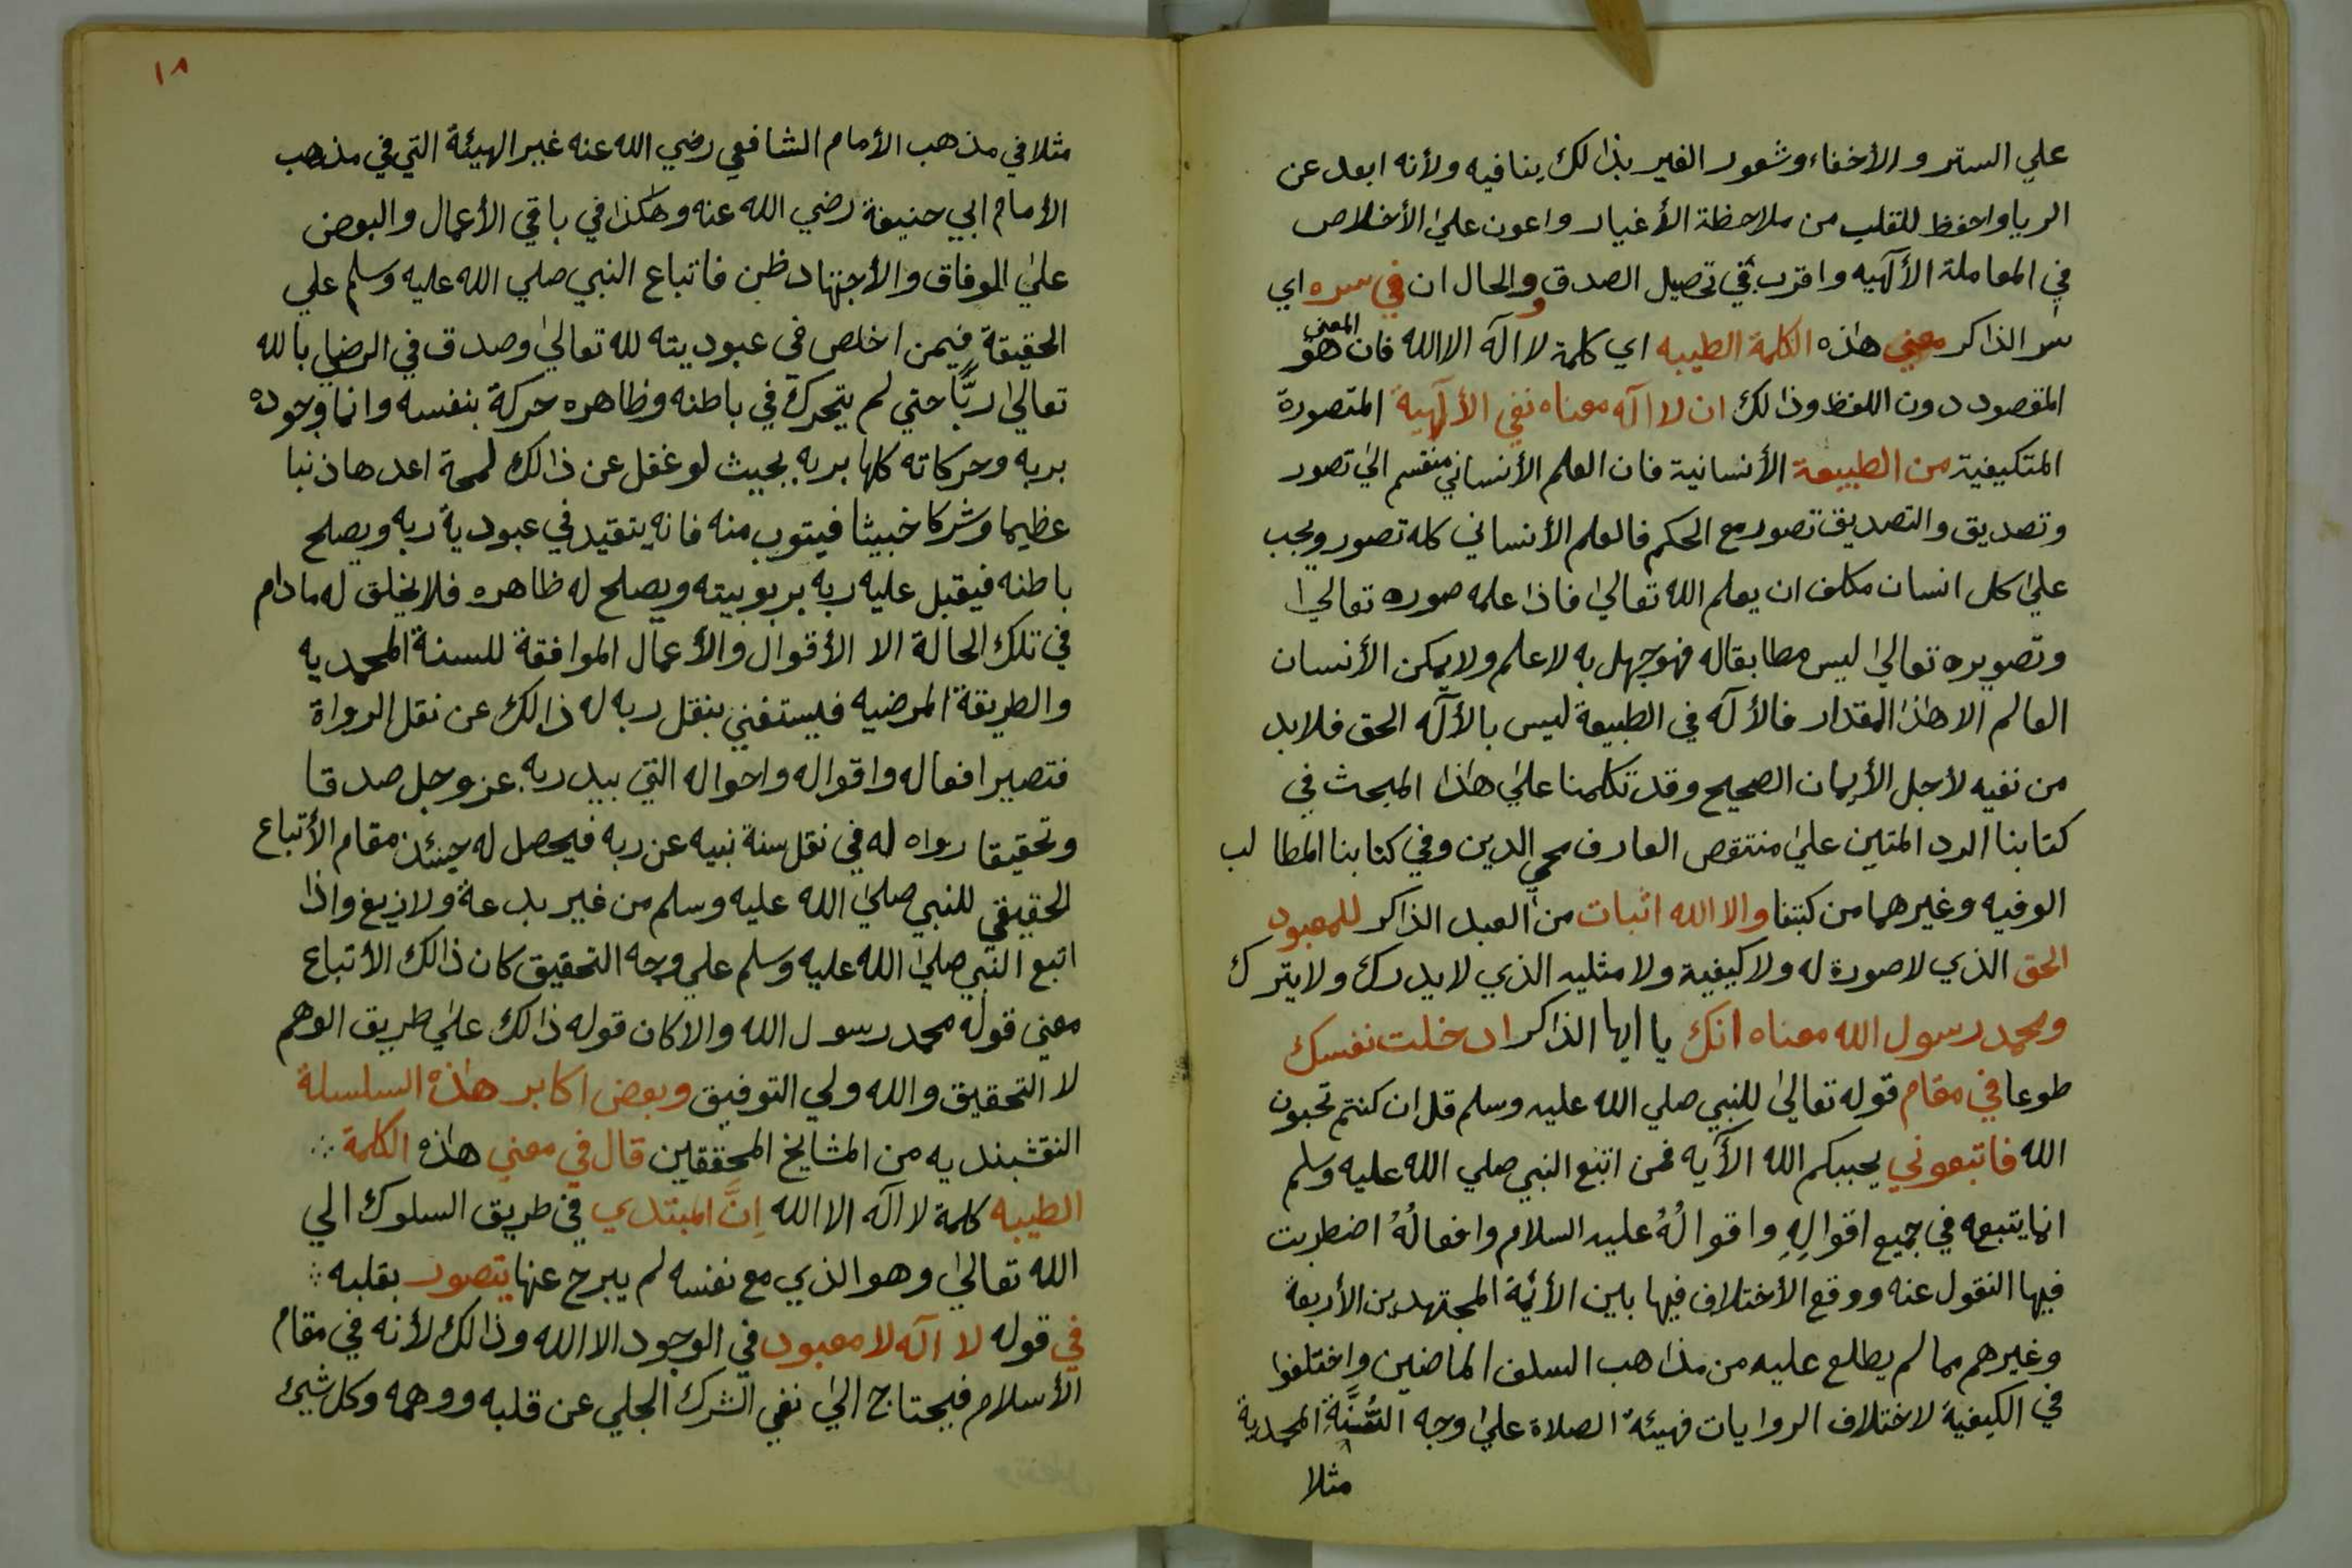 علي الستر والأخفاء وشعور الغير بذالك ينافيه ولأنه ابعد عن
الريا واحفظ للقلب من ملاحظة الأغيار واعون علي الأخلاص
في المعاملة الألهيه واقرب في تحصيل الصدق و والحال ان في سره اي
سر الذاكر معني هاذه الكلمة الطيبه اي كلمة لا اله الا الله فان المعني هو
المقصود دون اللفظ وذالك ان لا اله معناه نفي الألهية المتصورة
المتكيفية من الطبيعة الأنسانية فان العلم الأنساني منقسم الي تصور
وتصديق والتصديق تصور مع الحكم فالعلم الأنساني كله تصور ويجب
علي كل انسان مكلف ان يعلم الله تعالي فاذا علمه صوره تعالي
وتصويره تعالي ليس مطابقا له فهو جهل به لا علم ولا يمكن الأنسان
العالم الا هاذا المقدار فالأله في الطبيعة ليس بالأله الحق فلا بد
من نفيه لأجل الأيمان الصحيح وقد تكلمنا علي هاذا المبحث في
كتابنا الرد المتين علي منتقص العارف محي الدين وفي كتابنا المطالب
الوفيه وغيرهما من كتبنا والا الله اثبات من العبد الذاكر للمعبود
الحق الذي لا صورة له ولا كيفية ولا مثليه الذي لا يدرك ولا يترك
ومحمد رسول الله معناه انك يا ايها الذاكر ادخلت نفسك
طوعا في مقام قوله تعالي للنبي صلي الله عليه وسلم قل ان كنتم تحبون
الله فاتبعوني يحببكم الله الأيه فمن اتبع النبي صلي الله عليه وسلم
انما يتبعه في جميع اقوالِهِ واقوالُهُ عليه السلام وافعالُهُ اضطربت
فيها النقول عنه ووقع الأختلاف فيها بين الأئمة المجتهدين الأربعة
وغيرهم مما لم يطلع عليه من مذاهب السلف الماضين واختلفوا
في الكيفية لاختلاف الروايات فهيئة الصلاة علي وجه السُّنَّةِ المحمدية
مثلا
١٨
مثلا في مذهب الأمام الشافعي رضي الله عنه غير الهيئة التي في مذهب
الأمام ابي حنيفة رضي الله عنه وهاكذا في باقي الأعمال والبعض
علي الوفاق والأجتهاد ظن فاتباع النبي صلي الله عليه وسلم علي
الحقيقة فيمن اخلص في عبوديته لله تعالي وصدق في الرضا بالله
تعالي ربًّا حتي لم يتحرك في باطنه وظاهره حركة بنفسه وانما وجوده
بربه وحركاته كلها بربه بحيث لو غفل عن ذالك لمحة اعدها ذنبا
عظيما وشركا خبيثا فيتوب منه فانه يتقيد في عبودية ربه ويصلح
باطنه فيقبل عليه ربه بربوبيته ويصلح له ظاهره فلا يخلق له ما دام
في تلك الحالة الا الأقوال والأعمال الموافقة للسنة المحمديه
والطريقة المرضيه فيستغني بنقل ربه له ذالك عن نقل الرواة
فتصير افعاله واقواله واحواله التي بيد ربه عز وجل صدقا
وتحقيقا رواه له في نقل سنة نبيه عن ربه فيحصل له حينئذ مقام الأتباع
الحقيقي للنبي صلي الله عليه وسلم من غير بدعة ولا زيغ واذا
اتبع النبي صلي الله عليه وسلم علي وجه التحقيق كان ذالك الأتباع
معني قوله محمد رسول الله والا كان قوله ذالك علي طريق الوهم
لا التحقيق والله ولي التوفيق وبعض اكابر هاذه السلسلة
النقشبنديه من المشايخ المحققين قال في معني هاذه الكلمة ∴
الطيبه كلمة لا اله الا الله اِنَّ المبتدي في طريق السلوك الي
الله تعالي وهو الذي مع نفسه لم يبرح عنها يتصور بقلبه ∴
في قوله لا اله لا معبود في الوجود الا الله وذالك لأنه في مقام
الأسلام فيحتاج الي نفي الشرك الجلي عن قلبه ووهمه وكل شيئ